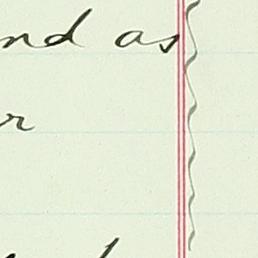 nd as
r